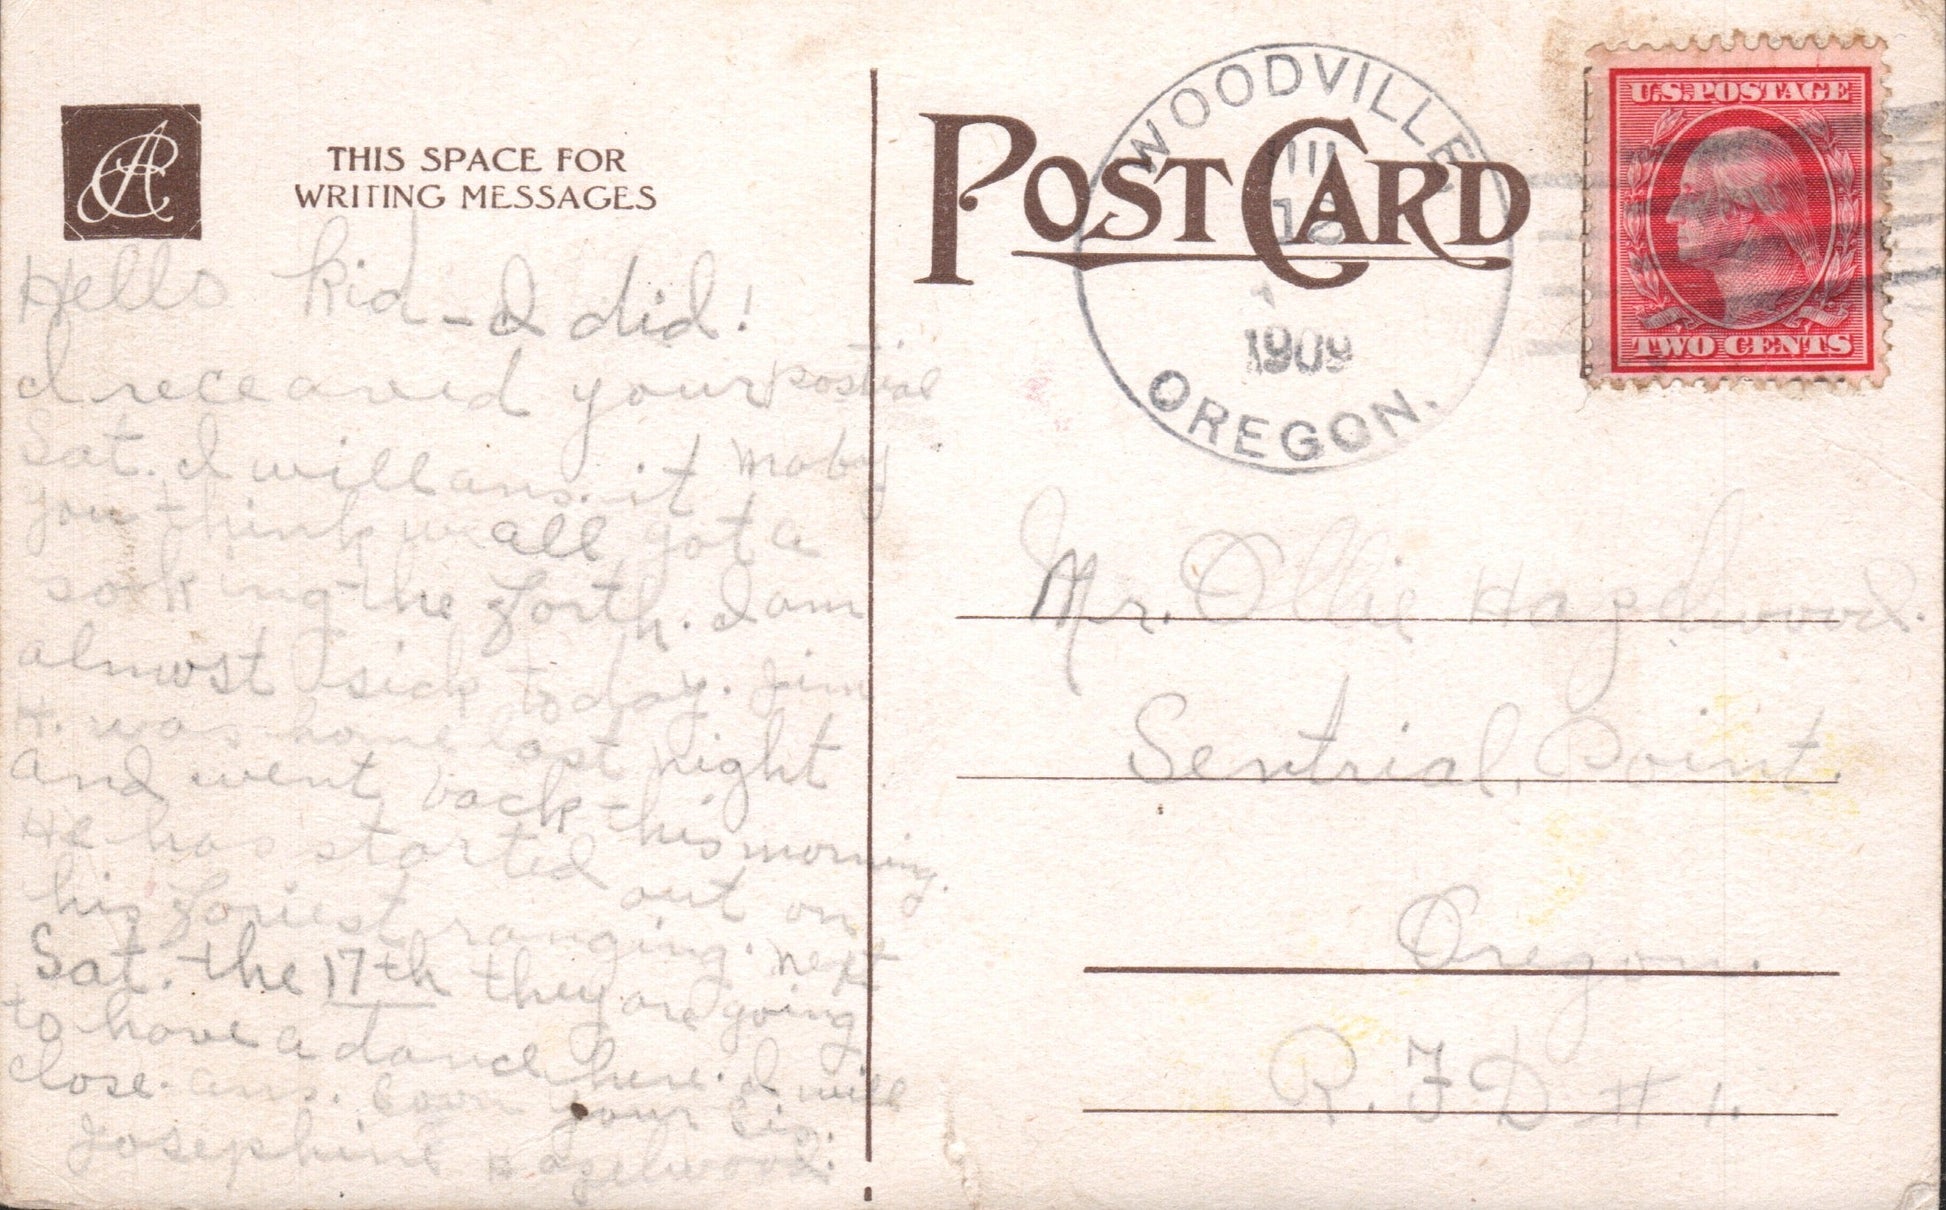 THIS SPACE FOR
WRITING MESSAGES
Hello kid - I did!
I receaved your postial
Sat. I will ans. it maby
you think we all got a
soaking the forth. I am
almost sick today. Jim
H. was home last night
and went back this morning.
He has started out on
his foriest ranging. next
Sat. the 17th they are going
to have a dance here. I will
close. ans. soon your Sis.
Josephine Hazelwood.
POST CARD
WOODVILLE
1909
OREGON.
U.S. POSTAGE
TWO CENTS
Mr. Ollie Hazelwood.
Sentrial Point.
Oregon.
R. F D # 1.